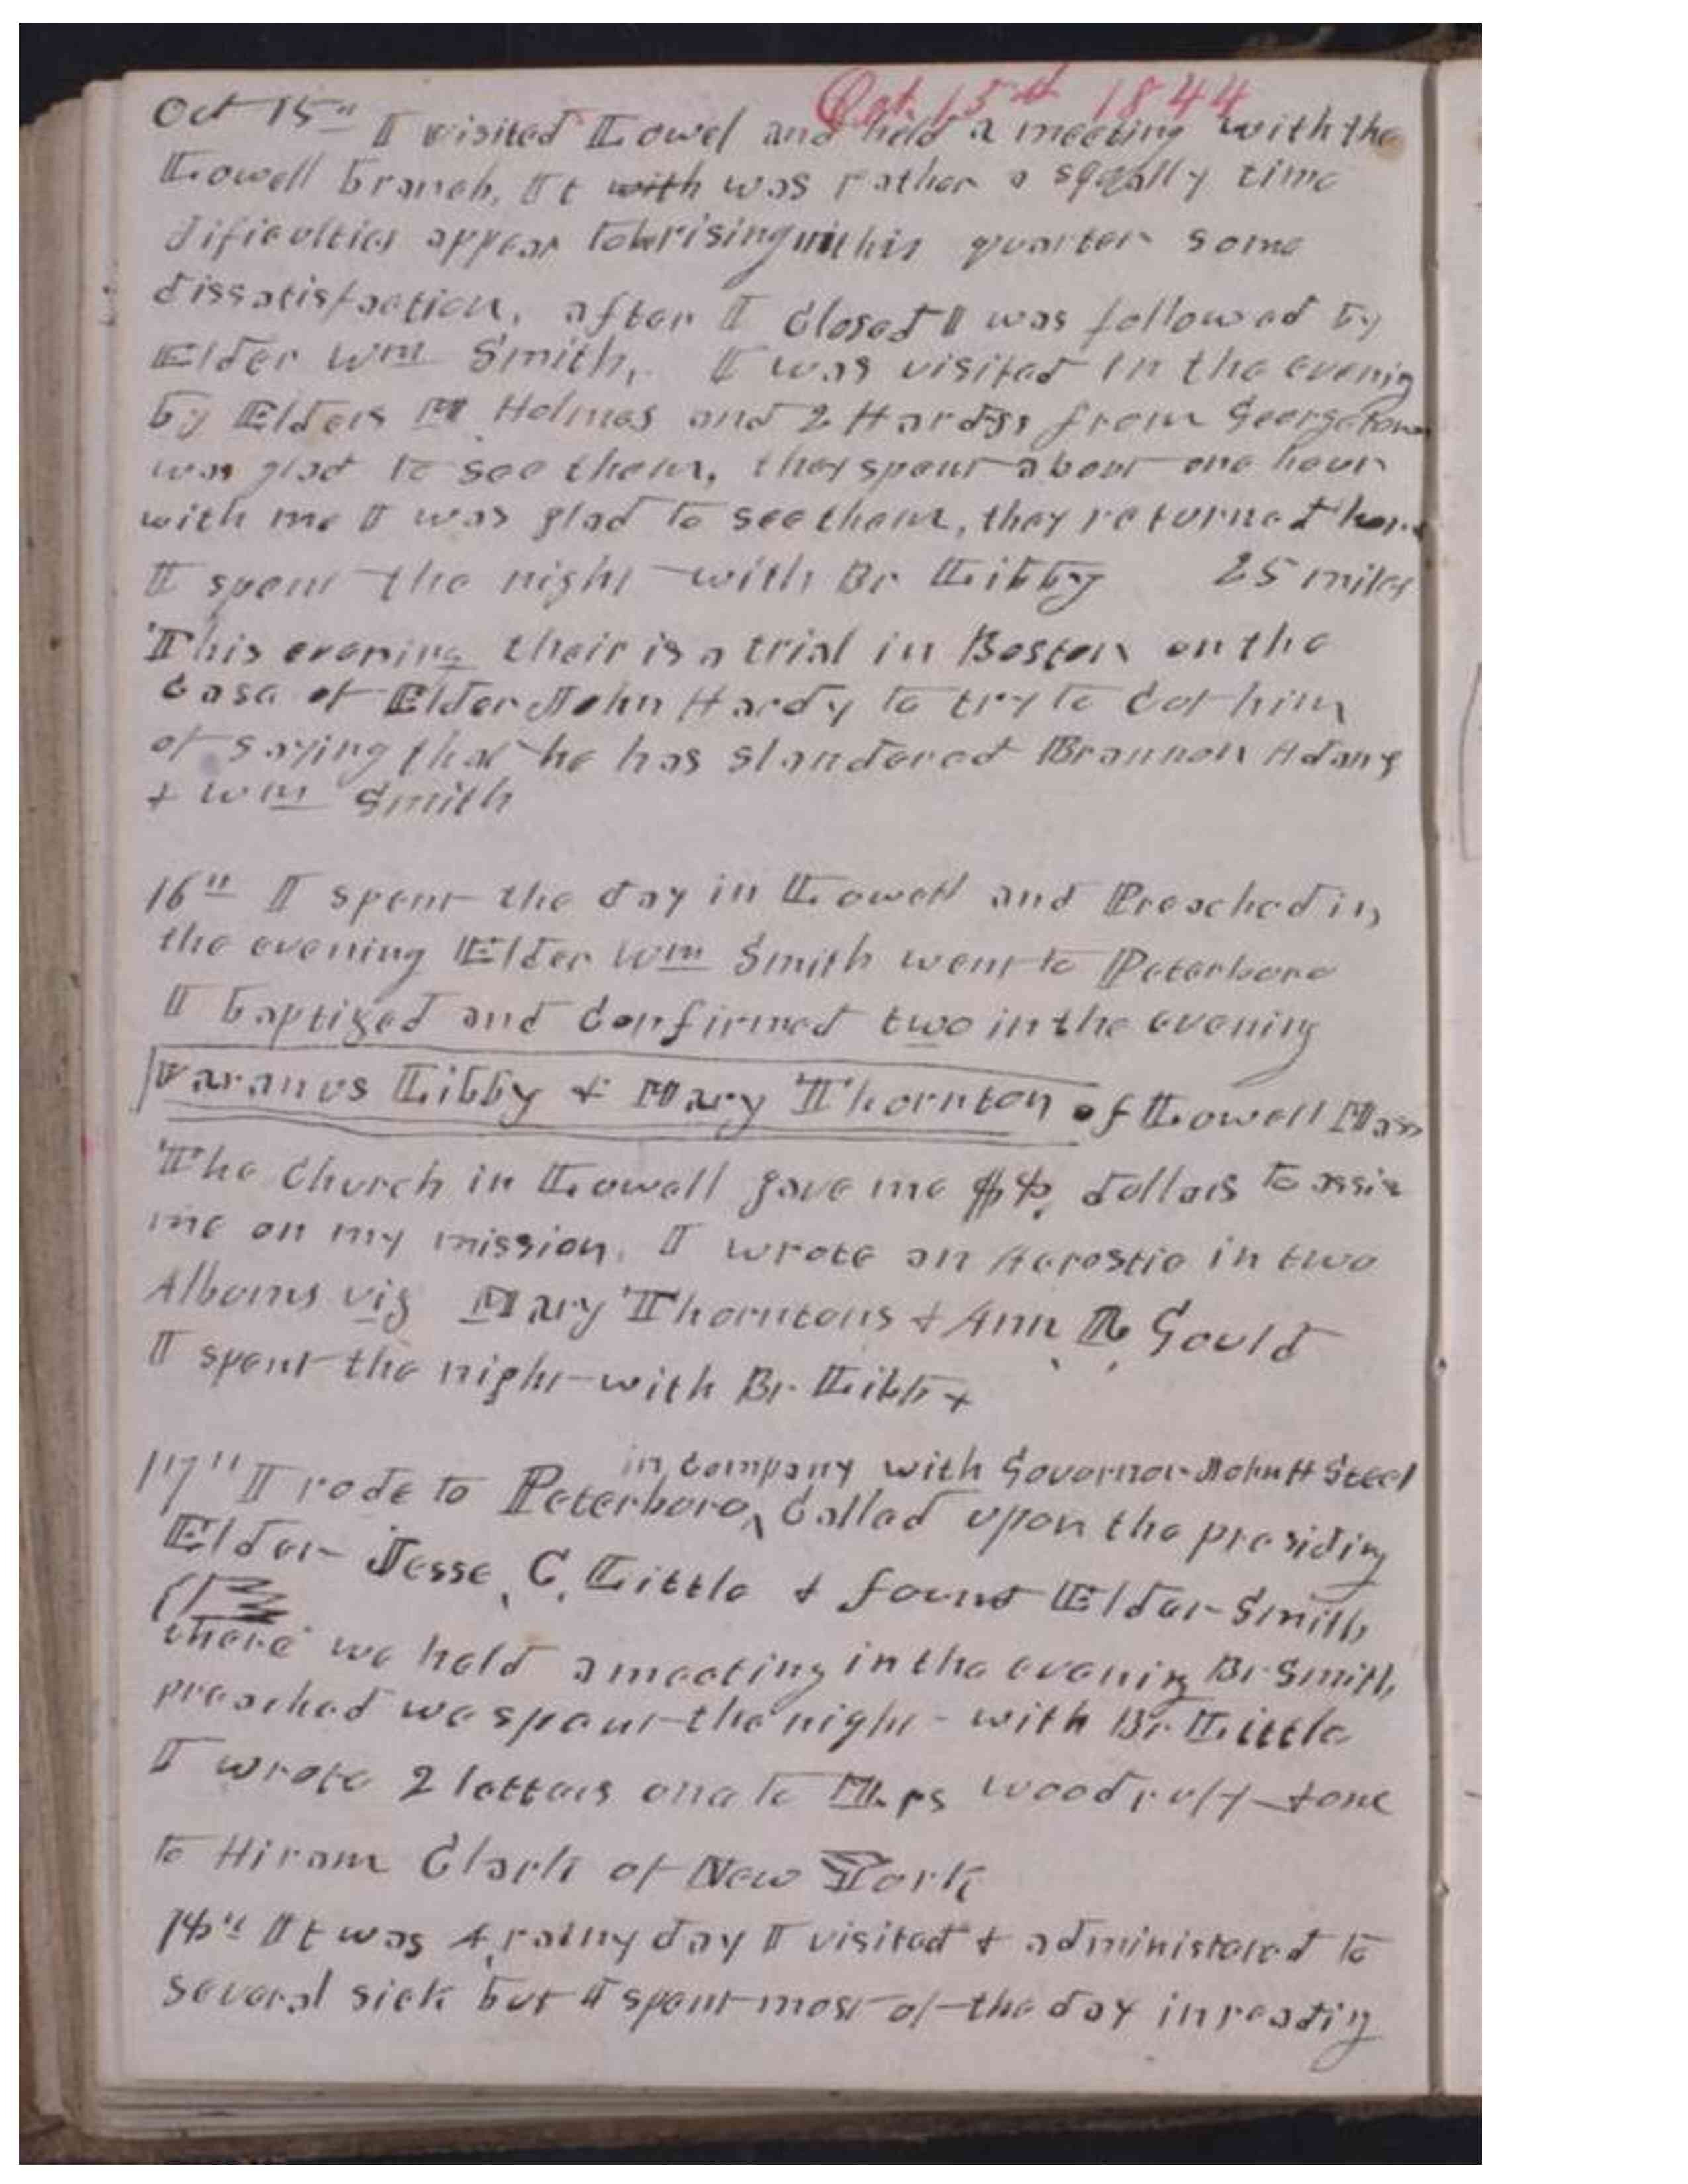 Oct. 15th 1844
Oct 15th I visited Lowel and held a meeting with the
Lowell branch, It with was rather a squally time
dificulties appear to be rising in this quarter some
dissatisfaction, after I closed I was followed by
Elder Wm Smith, I was visited in the evenig
by Elders M Holmes and 2 Hardys from Georgetown
was glad to see them, they spent about one hour
with me I was glad to see them, they returned home
I spent the night with Br Libby 25 miles
This evening their is a trial in Boston on the
case of Elder John Hardy to try to cot him
of saying that he has slandered Brannon Adams
+ Wm Smith
16th I spent the day in Lowell and Preached in
the evening Elder Wm Smith went to Peterboro
I baptized and confirmed two in the evening
Varanus Libby + Mary Thornton of Lowell Mass
The Church in Lowell gave me dollars to assist
me on my mission. I wrote an Acrostic in two
Albums viz Mary Thorntons + Ann R. Gould
I spent the night with Br. Libby
in company with Governor John H Steel
17" I rode to Peterboro, called upon the presiding
Elder Jesse, C. Little + found Elder Smith
there we held a meeting in the evenig Br Smith
preached we spent the night with Br Little
I wrote 2 letters one to Mrs Woodruff + one
to Hiram Clark of New York
18" It was A rainy day I visited + administered to
several sick but I spent most of the day in readig